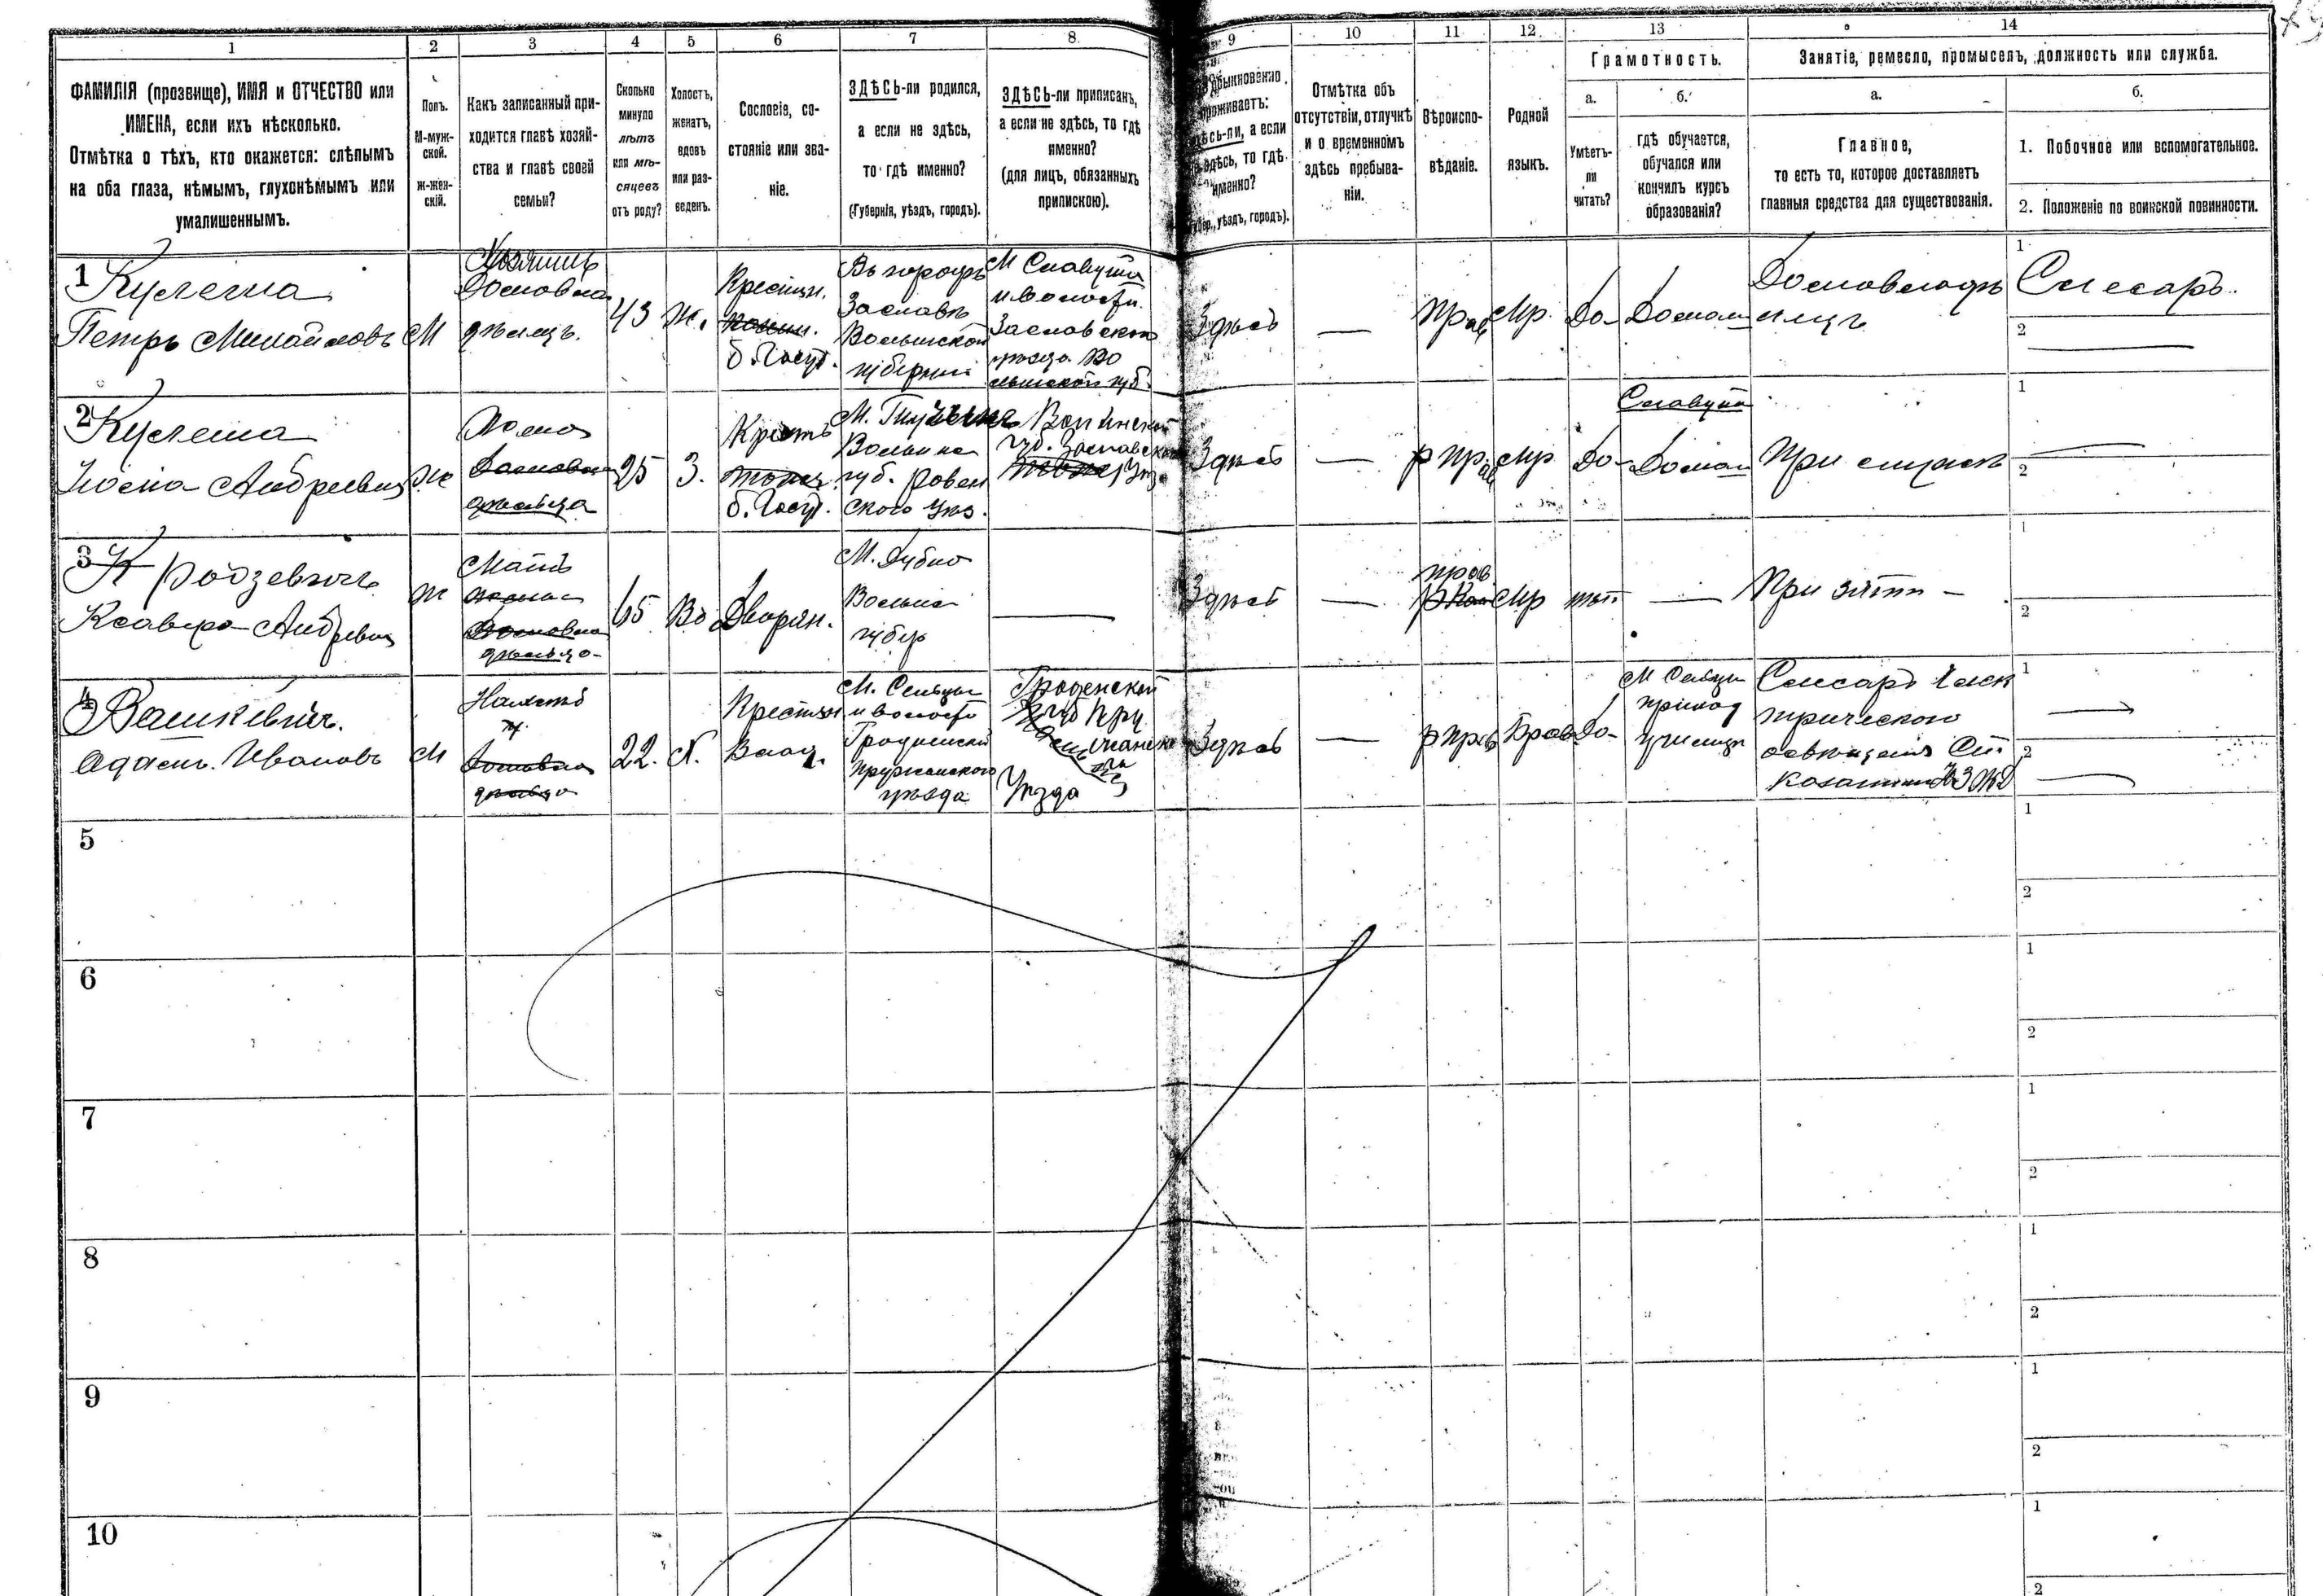 1 2 3 4 5 6 7 8 9 10 11 12 13 14
ФАМИЛІЯ (прозвище), ИМЯ и ОТЧЕСТВО или
ИМЕНА, если ихъ нѣсколько.
Отмѣтка о тѣхъ, кто окажется: слѣпымъ
на оба глаза, нѣмымъ, глухонѣмымъ или
умалишеннымъ.
Полъ.
М-муж-
ской.
Ж-жен-
скій.
Какъ записанный при-
ходится главѣ хозяй-
ства и главѣ своей
семьи?
Сколько
минуло
лѣтъ
или мѣ-
сяцевъ
отъ роду?
Холостъ,
женатъ,
вдовъ
или раз-
веденъ.
Сословіе, со-
стояніе или зва-
ніе.
ЗДѢСЬ-ли родился,
а если не здѣсь,
то гдѣ именно?
(Губернія, уѣздъ, городъ).
ЗДѢСЬ-ли приписанъ,
а если не здѣсь, то гдѣ
именно?
(для лицъ, обязанныхъ
припискою).
обыкновенно
проживаетъ:
здѣсь-ли, а если
не здѣсь, то гдѣ
именно?
(Губер., уѣздъ, городъ).
Отмѣтка объ
отсутствіи, отлучкѣ
и о временномъ
здѣсь пребыва-
ніи.
Вѣроиспо-
вѣданіе.
Родной
языкъ.
Грамотность.
а.
Умѣетъ-
ли
читать?
б.
гдѣ обучается,
обучался или
кончилъ курсъ
образованія?
Занятіе, ремесло, промыселъ, должность или служба.
а.
Главное,
то есть то, которое доставляетъ
главныя средства для существованія.
б.
1. Побочное или вспомогательное.
2. Положеніе по воинской повинности.
1
Кулеша
Петръ Михайловъ
М
Хозяинъ
Домовла
дѣлецъ.
43
Ж.
Крестян.
б. Госуд.
Въ городѣ
Заславѣ
Волынской
губерніи
М Славута
и волости
Заславского
уѣзда Во
лынской губ.
Здѣсь
—
Прав
Мр.
Да
Дома
Домовладѣ
лецъ
1
Слесаръ.
2
2
Кулеша
Андреевна
Ж
Жена
25
З.
Крестъ
б. Госуд.
Волынс
губ. Ровен
ского Уѣз.
Волынской
губ. Заславского
Уѣз
Здѣсь
—
Прав
Мр
Да
Славута
Дома
При мужѣ
1
2
3
Ксавера Андреевна
Ж
Мать
65
Вд
Дворян.
М. Дубно
Волынс
губер
Здѣсь
—
прав
Мр
нѣт
—
При зятѣ —
1
2
4
Вашкевичъ.
Адамъ Ивановъ
М
22.
Х.
Крестян
М. Сельцы
и волости
Гродненской
Пружанского
уѣзда
Гродненской
губ Пру
жанско
Уѣзда
Здѣсь
—
Прав
Да
М Сельцы
приход
училищ
Слесарь Элек
трического
освѣщенія Ст.
Козатинъ ЮЗЖД
1
2
5
1
2
6
1
2
7
1
2
8
1
2
9
1
2
10
1
2